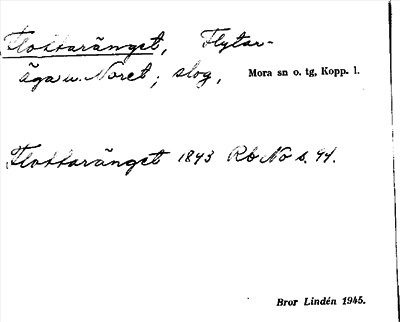 Flottaränget, Flytar-
äga u. Noret; slog, Mora sn o. tg, Kopp. l.
Flottaränget 1843 Rb No s. 94.
Bror Lindén 1945.